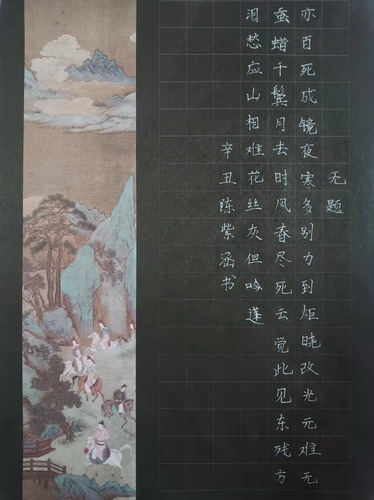 无题
亦百死成镜夜寒多别力到炬晓改光元难无
蚕蜡千鬓月去时风春尽死云觉此见东残方
泪愁应山相难花丝灰但吟蓬
辛丑陈紫涵书